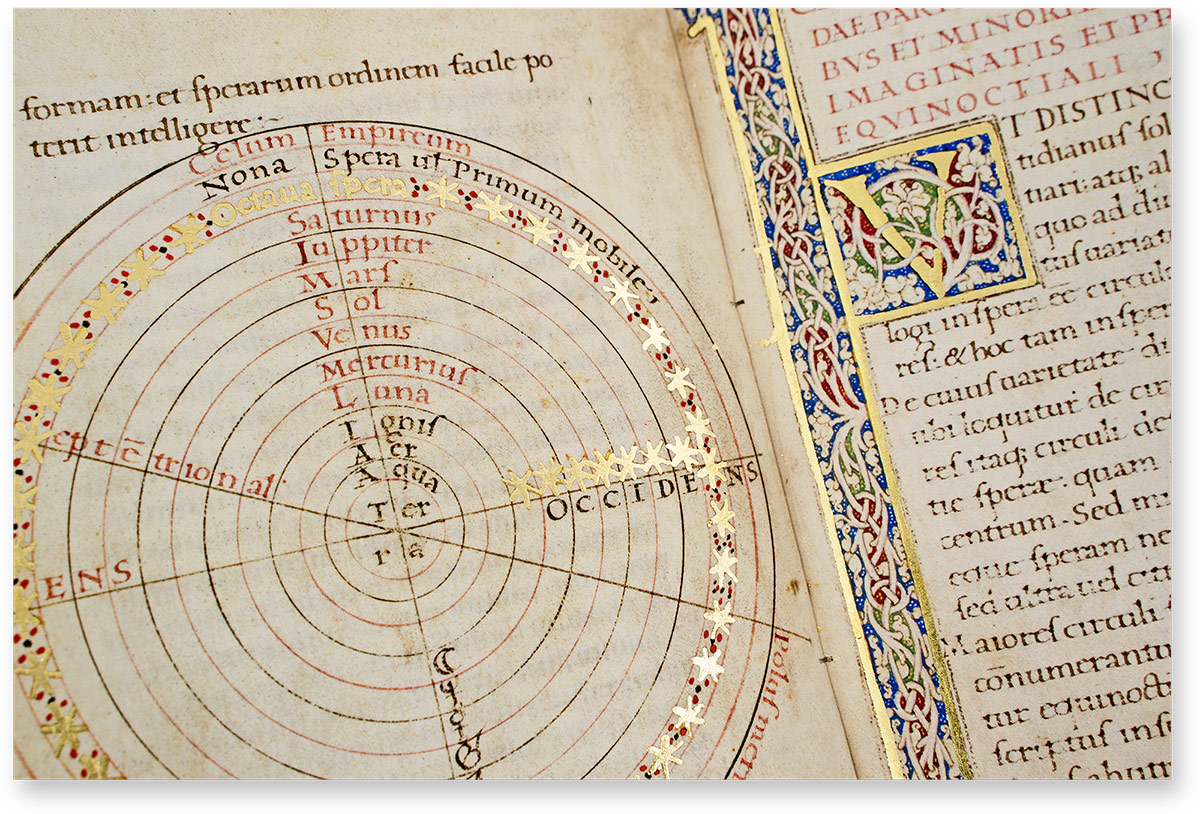 formam: et sperarum ordinem facile po
terit intelligere:~
Celum Empireum
Nona Spera ul Primum mobile
Octaua spera
Saturnus
Iuppiter
Mars
Sol
Venus
Mercurius
Luna
Ignis
Aer
Aqua
Ter
rā
eptē trional
OCCIDENS
ENS
Polus meri
☾
☿
DAE PAR
BVS ET MINORI
IMAGINATIS ET PE
EQVINOCTIALI
VT DISTINC
tidianus sol
tiari: atq; al
quo ad diu
tus uariat
logi in spera et circula
res: & hoc tam in sper
De cuius uarietate di
nbi loquitur de circ
res itaq; circuli de
tie sperae quam
centrum. Sed mi
eque speram ne
sed ultra uel citr
Maiores circuli
cōnumerantu
tur equinocti
scriptus ins